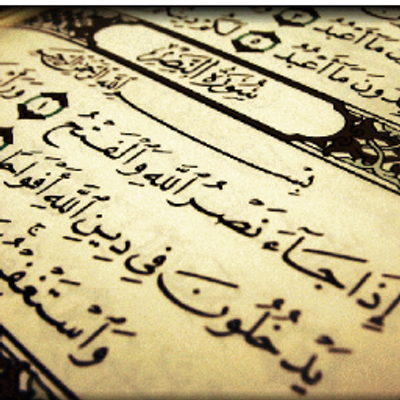 مَا أَعْبُدُ ۝٣
مَا أَعْبُدُ ۝٥ لَكُمْ دِينُكُمْ
سُورَةُ النَّصْرِ
بِسْمِ اللَّهِ الرَّحْمَٰنِ الرَّحِيمِ
إِذَا جَآءَ نَصْرُ اللَّهِ وَالْفَتْحُ ۝١
يَدْخُلُونَ فِي دِينِ اللَّهِ أَفْوَاجًا
وَاسْتَغْفِرْ